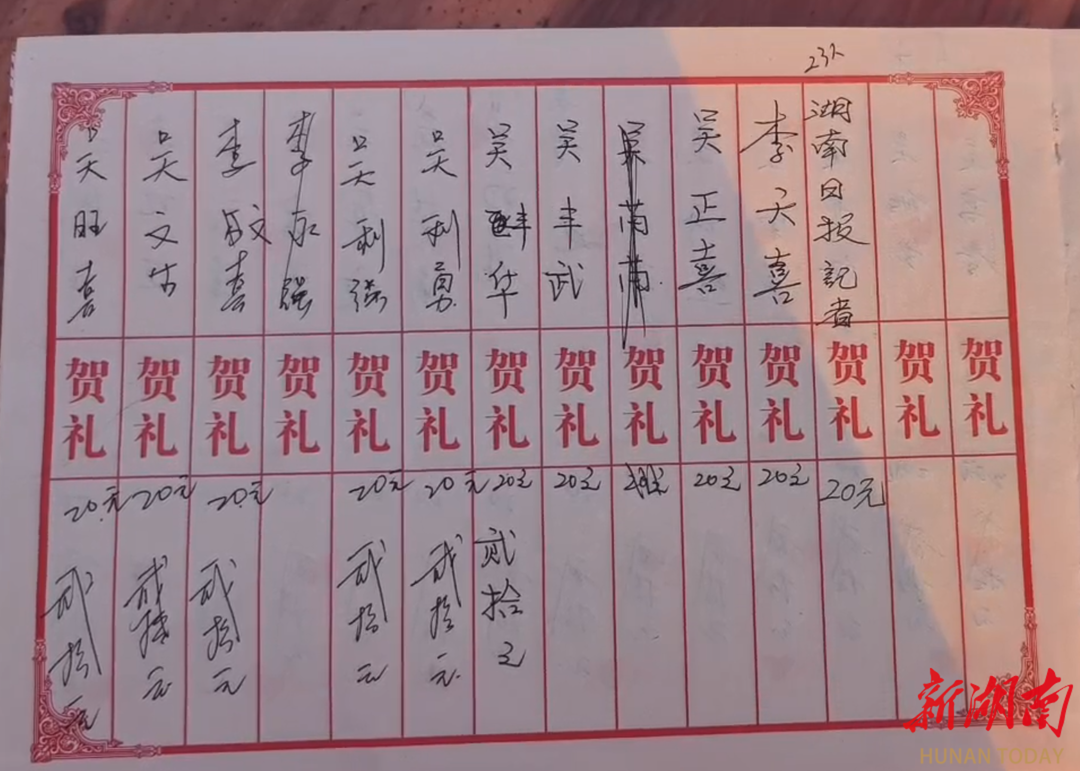 23人
贺礼
贺礼
湖南日报記者 贺礼 20元
李天喜 贺礼 20元
吴正喜 贺礼 20元
吴 贺礼
吴丰武 贺礼 20元
吴 华 贺礼 20元 贰拾元
吴利勇 贺礼 20元 贰拾元
吴利强 贺礼 20元 贰拾元
李永强 贺礼
李 喜 贺礼 20元 贰拾元
吴文 贺礼 20元 贰拾元
吴旺喜 贺礼 20元 贰拾元
新湖南
HUNAN TODAY